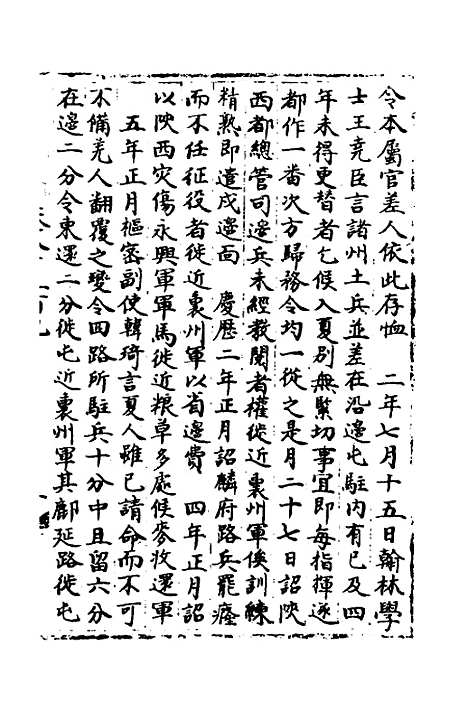 令本屬官差人依此存恤　二年七月十五日翰林學
士王堯臣言諸州土兵並差在沿邊屯駐内有已及四
年未得更替者乞候入夏别無緊切事宜即每指揮逐
都作一番次方歸務令均一從之是月二十七日詔陝
西都總管司邊兵未經教閱者權徙近裏州軍俟訓練
精熟即遣戍邊面　慶曆二年正月詔麟府路兵罷癃
而不任征役者徙近裏州軍以省邊費　四年正月詔
以陝西灾傷永興軍軍馬徙近粮草多處候麥收還軍
　五年正月樞密副使韓琦言夏人雖已請命而不可
不備羌人翻覆之變令四路所駐兵十分中且留六分
在邊二分令東還二分徙屯近裏州軍其鄜延路徙屯